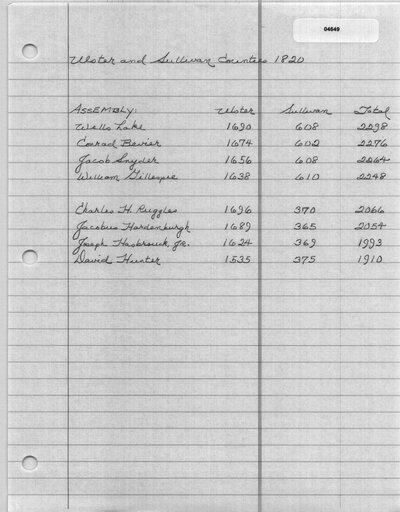 04649
Ulster and Sullivan Counties 1820
ASSEMBLY: Ulster Sullivan Total
Wells Lake 1690 608 2298
Conrad Bevier 1674 602 2276
Jacob Snyder 1656 608 2264
William Gillespie 1638 610 2248
Charles H. Ruggles 1696 370 2066
Jacobus Hardenburgh 1689 365 2054
Joseph Hasbrouck, Jr. 1624 369 1993
David Hunter 1535 375 1910